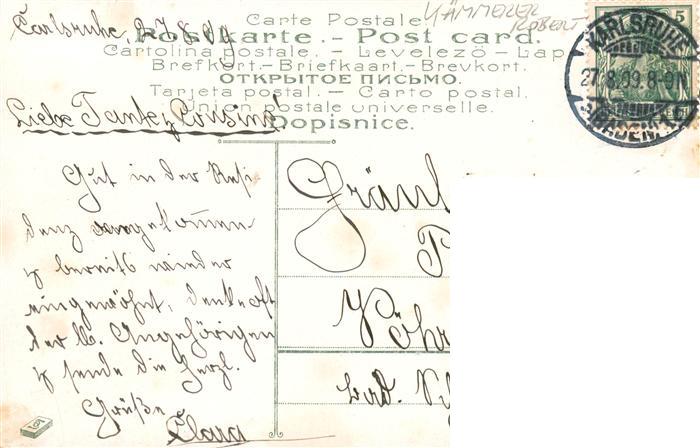 Carte Postale.
KÄMMERER
ROBERT
Carlsruhe, 27.8.09
Postkarte. - Post card.
Cartolina postale. - Levelező-Lap
Brefkort.-Briefkaart.-Brevkort.
ОТКРЫТОЕ ПИСЬМО.
Tarjeta postal. - Carto postal.
Union postale universelle.
Dopisnice.
5
KARLSRUHE
27.8.09.8-9N
(BADEN)
Liebe Tante & Cousine!
Gut in der Resi-
denz angekommen
& bereits wieder
eingewöhnt, denke oft
der lb. Angehörigen
& sende die herzl.
Grüße
Clara
Fräul
bad.